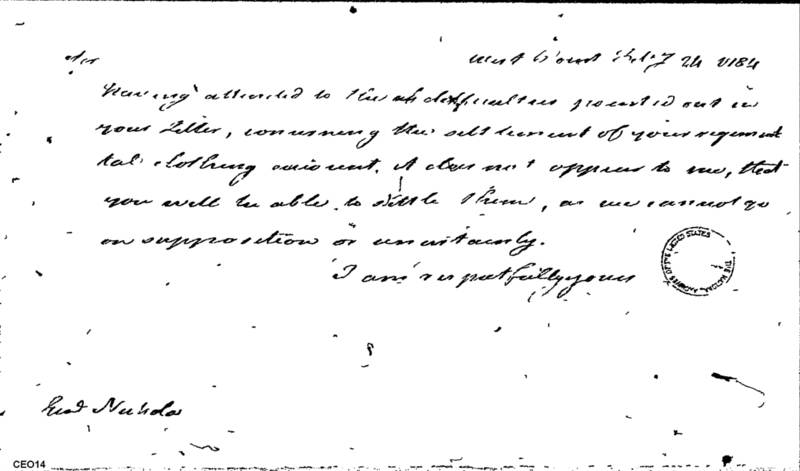 Sir West Point Feby 24 1784
Having attended to the difficulties pointed out in
your Letter, concerning the settlement of your regimen
tal clothing account. it does not appear to me, that
you will be able to settle them, as we cannot go
on supposition or uncertainty.
I am respectfully yours
THE NATIONAL ARCHIVES OF THE UNITED STATES
Nicholas
CEO14